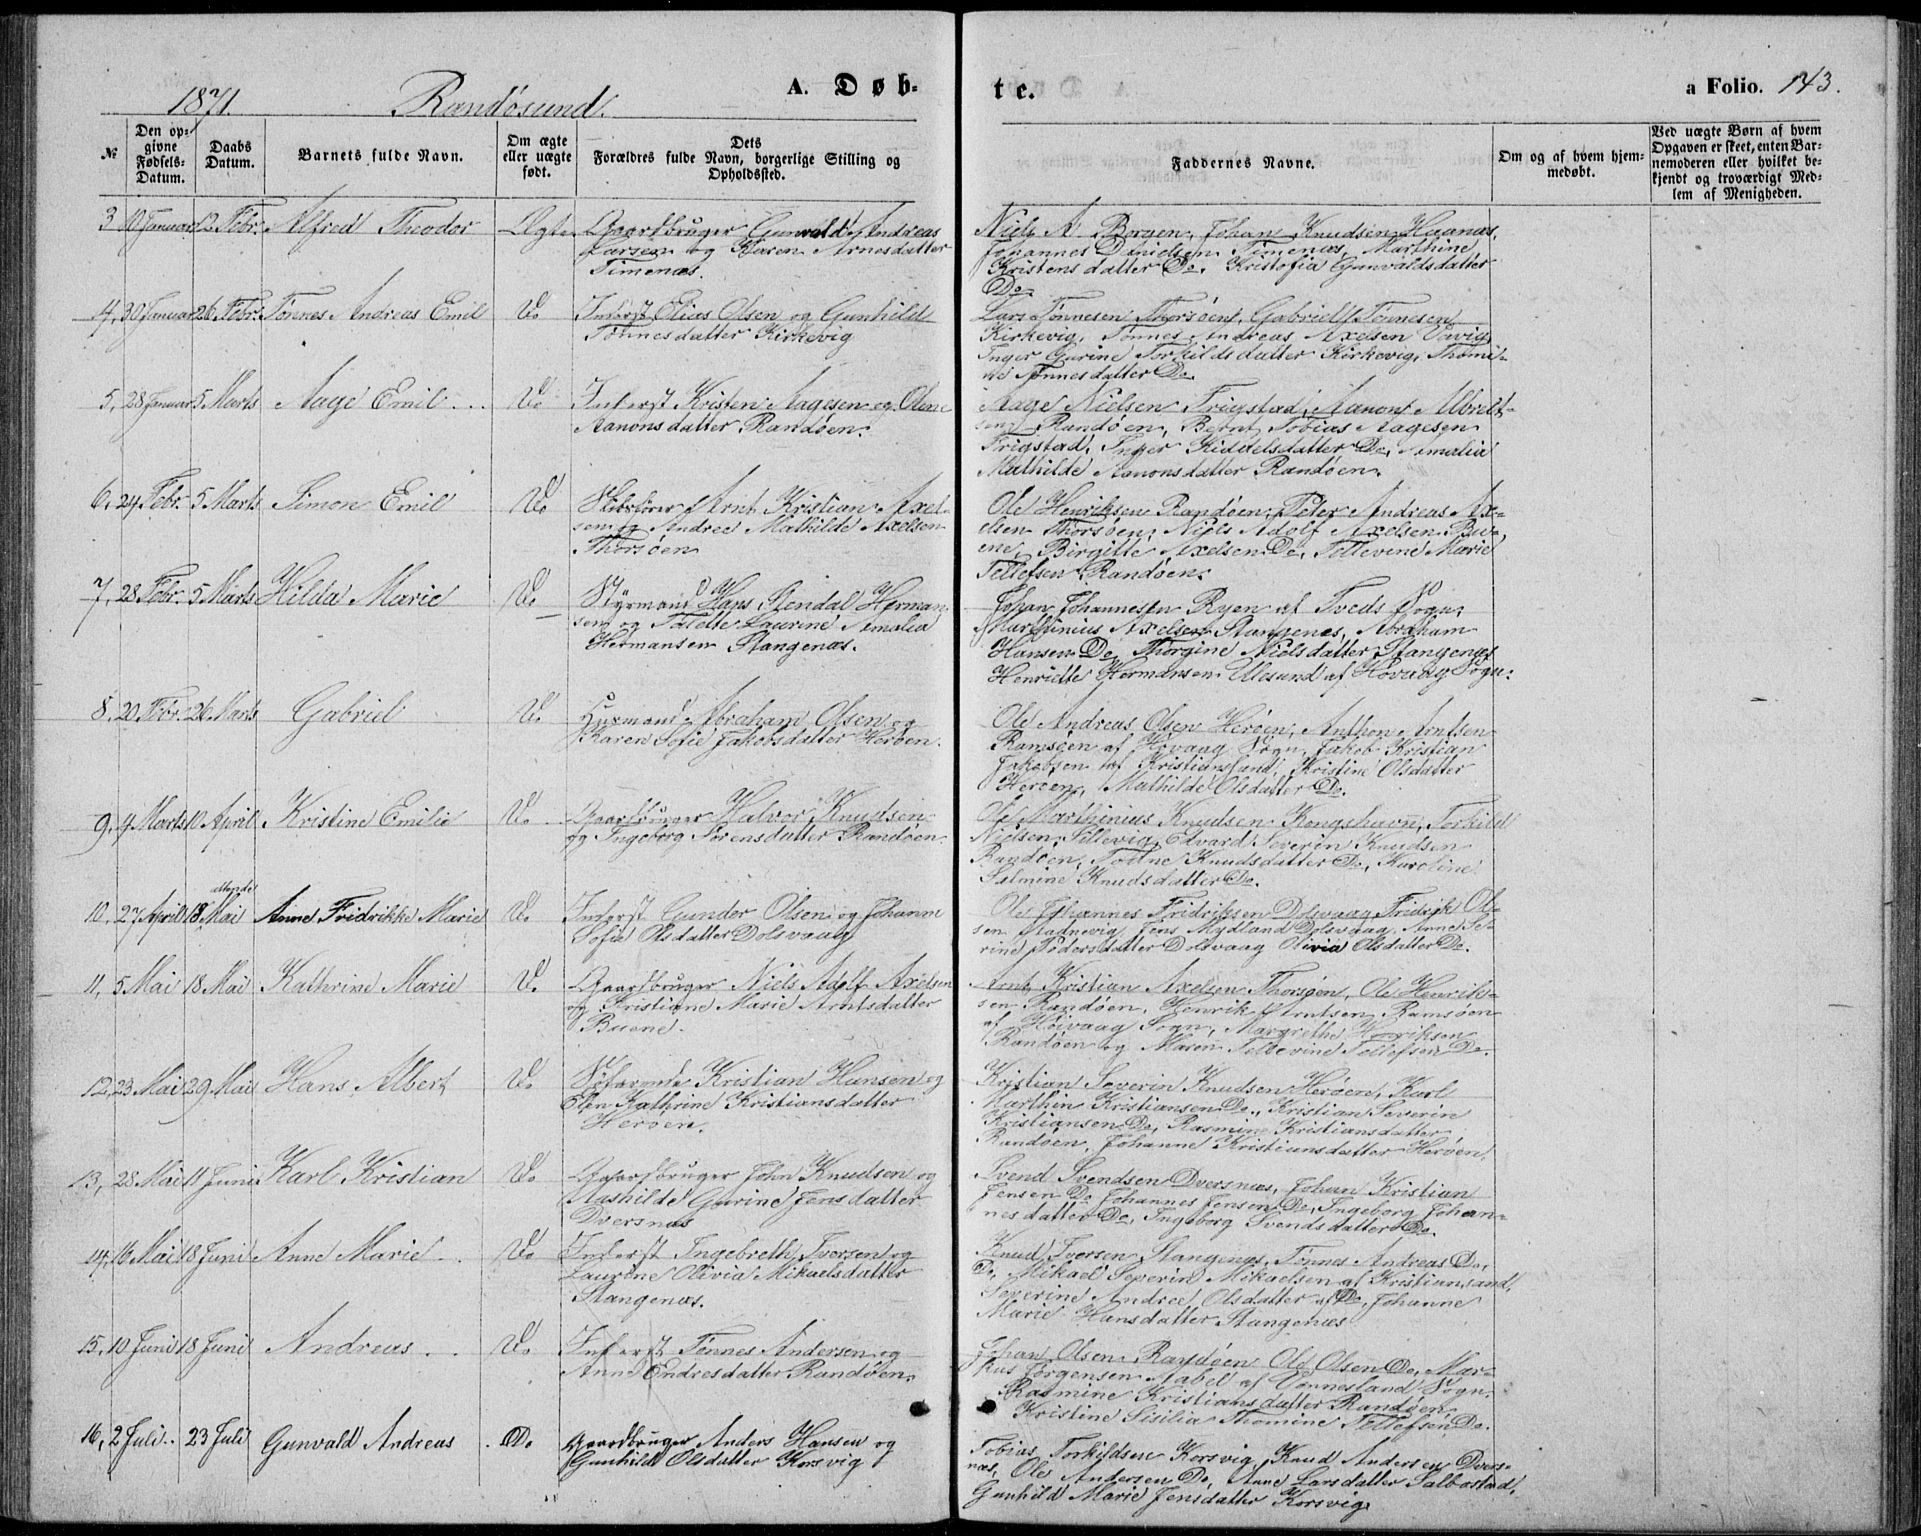 1871. Randösund. A. Døb-
№ Den opgivne Fødsels-Datum. Daabs Datum. Barnets fulde Navn. Om ægte eller uægte født. Dets Forældres fulde Navn, borgerlige Stilling og Opholdssted.
3 10 Januar 12 Febr. Alfred Theodor Ægte Gaardbruger Gunvald Andreas
Larsen og Karen Arnesdatter
Timenæs.
4, 30 Januar 26 Febr. Tønnes Andreas Emil Do Inderst Elias Olsen og Gunhild
Tønnesdatter Kirkevig
5, 28 Januar 5 Marts Aage Emil Do Inderst Kristen Aagesen og Olene
Aanonsdatter Randøen.
6, 24 Febr. 5 Marts Simon Emil Do Arnt Kristian Axel-
sen og Andrea Mathilde Axelsen
Thorsøen
7, 28 Febr. 5 Marts Hilda Marie Do Styrmand Hans Stendal Herman-
sen og Talette Laurine Amalia
Hermansen Stangenæs.
8, 20 Febr. 26 Marts Gabriel Do Husmand Abraham Olsen og
Karen Sofie Jakobsdatter Herøen.
9, 4 Marts 10 April Kristine Emilie Do Gaardbruger Halvor Knudsen
og Ingeborg Sørensdatter Randøen.
10, 27 April attende 18 Mai Anne Fridrikke Marie Do Inderst Gunder Olsen og Johanne
Sofie Olsdatter Dolsvaag
11, 5 Mai 18 Mai Kathrine Marie Do Gaardbruger Niels Adolf Axelsen
og Kristiane Marie Arntsdatter
Buene.
12, 23 Mai 29 Mai Hans Albert Do Søfarende Kristian Hansen og
Elen Kathrine Kristiansdatter
Herøen.
13, 28 Mai 11 Juni Karl Kristian Do Gaardbruger John Knudsen og
Mathilde Gurine Jensdatter
Dversnæs
14, 16 Mai 18 Juni Anne Marie Do Inderst Ingebreth Iversen og
Laurine Olivia Mikaelsdatter
Stangenæs.
15, 10 Juni 18 Juni Andreas Do Inderst Tønnes Andersen og
Anne Endresdatter Randøen.
16, 2 Juli 23 Juli Gunvald Andreas Do Gaardbruger Anders Hansen og
Gunhild Olsdatter Korsvig
te. a Folio. 143.
Faddernes Navne. Om og af hvem hjemmedøbt. Ved uægte Børn af hvem Opgaven er skeet, enten Barnemoderen eller hvilket bekjendt og troværdigt Medlem af Menigheden.
Niels A. Borgen, Johan Knudsen Haanæs,
Johannes Danielsen Timenæs, Marthine
Kristensdatter Do, Kristofia Gunvaldsdatter
Do.
Lars Tønnesen Thorsøen, Gabriel Tønnesen
Kirkevig, Tønnes Andreas Axelsen Vaavig,
Inger Gurine Torkildsdatter Kirkevig, Thomi-
ne Tønnesdatter Do.
Aage Nielsen Frigstad, Aanon Albret-
sen Randøen, Bernt Tobias Aagesen
Frigstad, Inger Kiddelsdatter Do, Amalia
Mathilde Aanonsdatter Randøen.
Ole Henriksen Randøen, Peter Andreas Ax-
elsen Thorsøen, Niels Adolf Axelsen Bu-
ene, Birgitte Axelsen Do, Tellevine Marie
Tellefsen Randøen.
Johan Johannesen Ryen af Tveds Sogn,
Marthinius Axelsen Stangenes, Abraham
Hansen Do, Thorgine Nielsdatter Stangenes
Henriette Hermansen Ulesund af Høvaag Sogn.
Ole Andreas Olsen Herøen, Anthon Arntsen
Ramsøen af Høvaag Sogn, Jakob Kristian
Jakobsen af Kristiansand, Kristine Olsdatter
Herøen, Mathilde Olsdatter Do.
Ole Marthinius Knudsen Kongshavn, Torkild
Nielsen Sillevig, Edvard Severin Knudsen
Randøen, Tomine Knudsdatter Do, Karoline
Salmine Knudsdatter Do.
Ole Johannes Fridriksen Dolsvaag, Fridrik Ol-
sen Stadnevig, Jens Mydland Dolsvaag, Anne Se-
rine Pedersdatter Dolsvaag Olivia Olsdatter Do.
Arnt Kristian Axelsen Thorsøen, Ole Henrik-
sen Randøen, Henrik Arntsen Ramsøen
af Høivaag Sogn, Margrethe Henriksen
Randøen og Maren Tellevine Tellefsen Do.
Kristian Severin Knudsen Herøen, Karl
Marthin Kristiansen Do., Kristian Severin
Kristiansen Do, Rasmine Kristiansdatter
Randøen, Johanne Kristiansdatter Herøen.
Svend Svendsen Dversnæs, Johan Kristian
Jensen Do Johannes Jensen Do, Ingeborg Johan-
nesdatter Do, Ingeborg Svendsdatter Do.
Knud Iversen Stangenes, Tønnes Andreas Do,
Do, Mikael Severin Mikaelsen af Kristiansand,
Severine Andrea Olsdatter af Do, Johanne
Marie Hansdatter Stangenæs
Johan Olsen Randøen Ole Olsen Do, Mar-
kus Jørgensen Aabel af Vennesland Sogn,
Rasmine Kristiansdatter Randøen
Kristine Sisilia Thomine Tellefsen Do.
Tobias Torkildsen Korsvig, Knud Andersen Dvers-
næs, Ole Andersen Do, Anne Larsdatter Salbostad,
Gunhild Marie Jensdatter Korsvig.